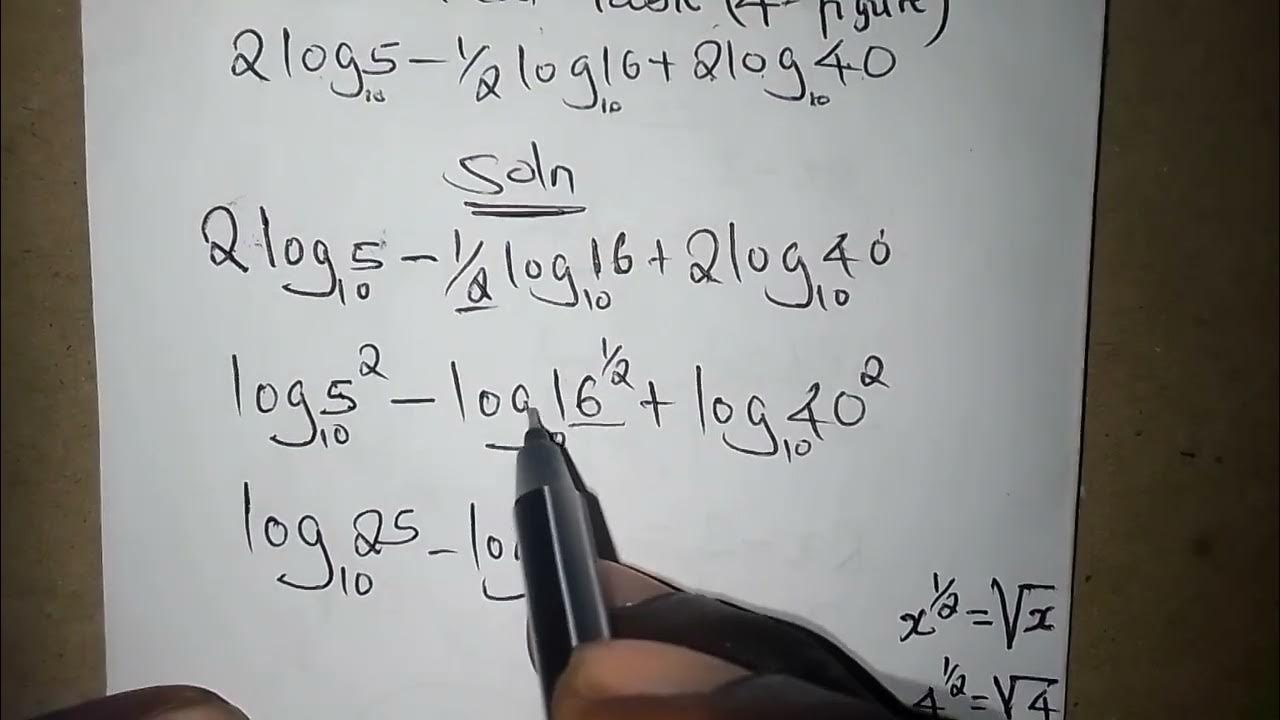 (4 figure)
2log₁₀5 - ½log₁₀16 + 2log₁₀40
Soln
2log₁₀5 - ½log₁₀16 + 2log₁₀40
log₁₀5² - log₁₀16^½ + log₁₀40²
log₁₀25 - lo
x^½ = √x
4^½ = √4